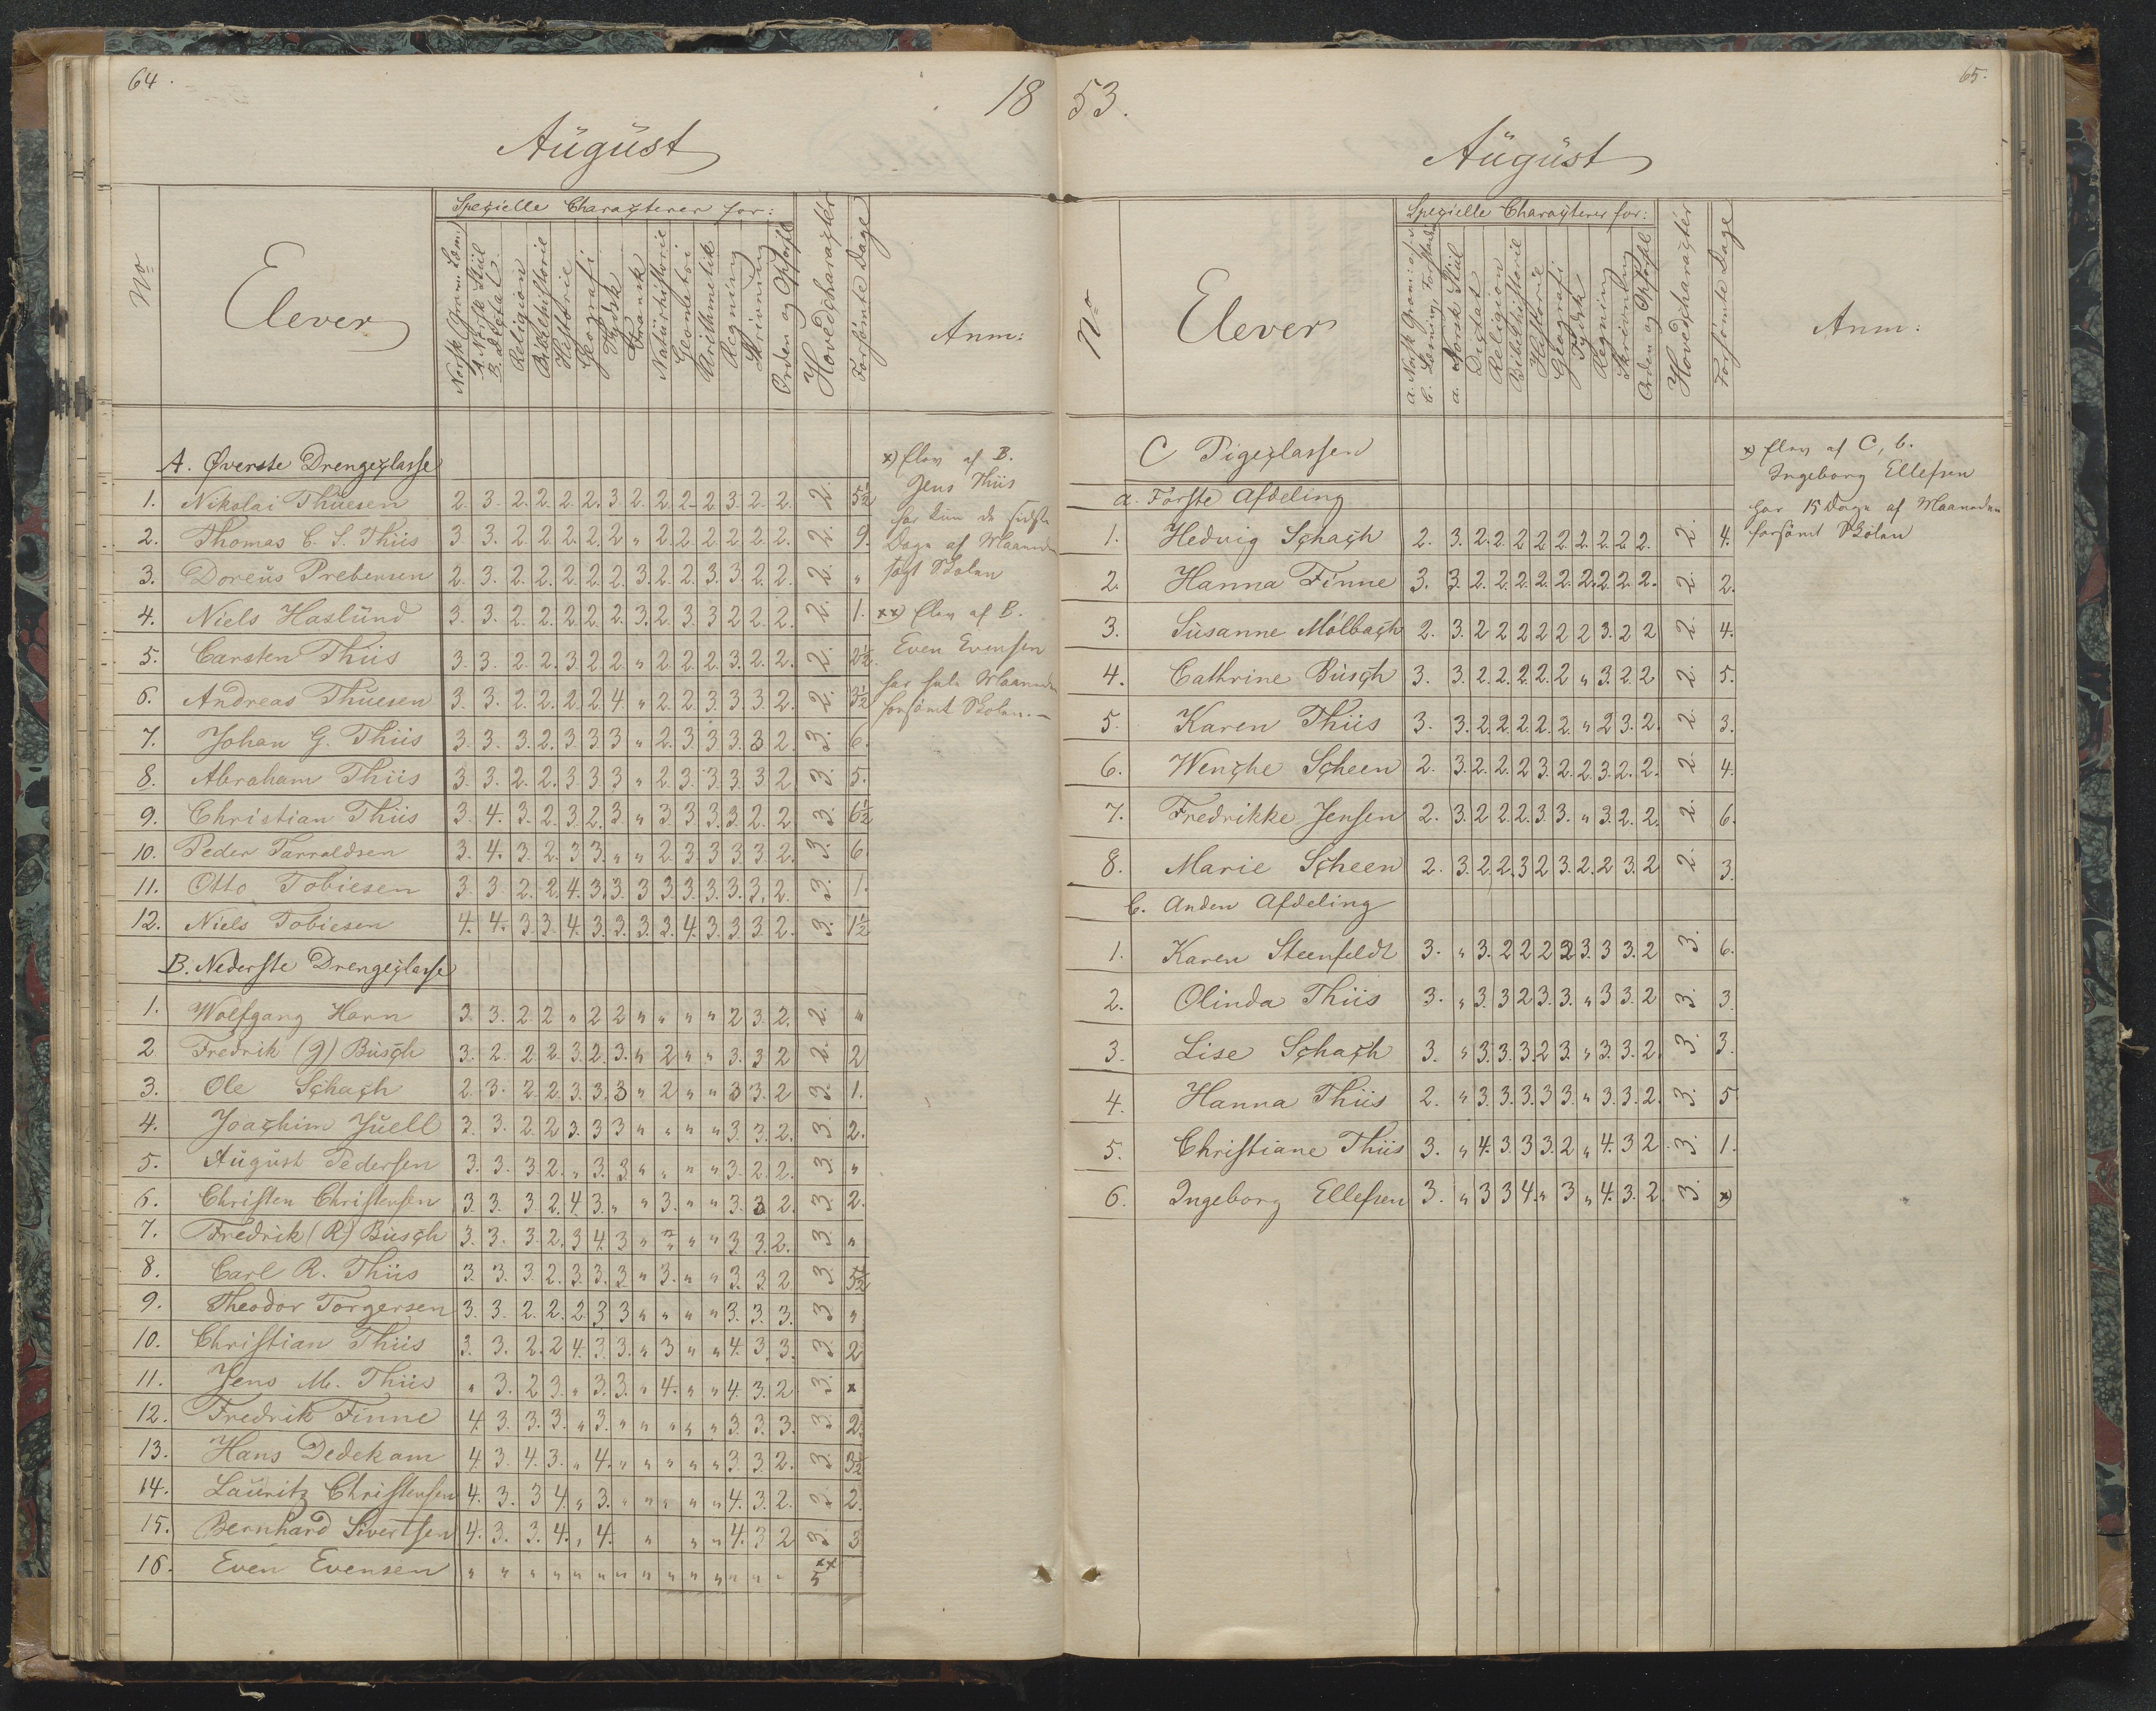 64.
18
August
No
Elever
Spezielle Charaçterer for:
Norsk Gram: Læsn:
A. Norsk Stiil
B. Dictat.
Religion
Bibelhistorie
Historie
Geografi
Tydsk
Fransk
Naturhistorie
Geometri
Arithmetik
Regning
Skrivning
Orden og Opførsel
Hovedcharaçter
Forsømte Dage
Anm:
A. Øverste Drengeçlasse
1. Nikolai Thuesen 2. 3. 2. 2. 2. 2. 3 2. 2. 2. 2 3. 2. 2. 2. 5½
2. Thomas C. S. Thiis 3. 3. 2. 2. 2. 2. 2 " 2. 2. 2. 2. 2. 2. 2. 9.
3. Doreus Prebensen 2. 3. 2. 2. 2. 2. 2. 3. 2. 2. 3. 3. 2. 2. 2. "
4. Niels Haslund 3. 3. 2. 2. 2. 2. 2. 3. 2. 3. 3 2 2. 2. 2. 1.
5. Carsten Thiis 3. 3. 2. 2. 3. 2. 2. " 2. 2. 2. 3. 2. 2. 2. 2½
6. Andreas Thuesen 3. 3. 2. 2. 2. 2. 4. " 2. 2. 3. 3. 3. 2. 2. 3½
7. Johan G. Thiis 3. 3. 3. 2. 3. 3. 3 " 2. 3. 3 3. 3 2. 3. 6.
8. Abraham Thiis 3. 3. 2. 2. 3 3. 3 " 2. 3. 3. 3. 3 2. 3. 5.
9. Christian Thiis 3. 4. 3. 2. 3. 2. 3. " 3. 3 3. 3. 2. 2 3. 6½
10. Peder Tarraldsen 3. 4. 3. 2. 3 3. " " 2. 3. 3 3. 3. 2. 3. 6.
11. Otto Tobiesen 3. 3 2. 2. 4. 3. 3. 3 3. 3. 3. 3. 3. 2. 3. 1.
12. Niels Tobiesen 4. 4. 3. 3. 4. 3. 3. 3. 3. 4. 3. 3. 3. 2. 3. 1½
B. Nederste Drengeçlasse
1. Wolfgang Horn 3. 3. 2. 2 " 2 2 " " " " 2 3. 2. 2. "
2 Fredrik (G) Busçh 3. 2. 2. 2. 3. 2. 3. " 2 " " 3. 3 2 2. 2
3. Ole Sçhaçh 2. 3. 2. 2. 3. 3. 3 " 2 " " 3 3. 2 3. 1.
4. Joaçhim Juell 3. 3. 2. 2 3. 3 3 " " " " 3. 3. 2. 3. 2.
5. August Pedersen 3. 3. 3. 2. " 3. 3. " " " " 3. 2. 2. 3. "
6. Christen Christensen 3. 3. 3. 2. 4. 3. " " 3. " " 3. 3 2. 3. 2.
7. Fredrik (R) Busçh 3. 3. 3. 2. 3 4. 3 " " " " 3. 3. 2. 3. "
8. Carl R. Thiis 3. 3. 3. 2. 3. 3. 3. " 3. " " 3. 3 2 3. 5½
9. Theodor Torgersen 3. 3. 2. 2. 2. 3 3 " " " " 3. 3. 3. 3 "
10. Christian Thiis 3. 3. 2. 2 4. 3. 3. " 3 " " 4. 3. 3. 3. 2
11. Jens M. Thiis " 3. 2 3. " 3. 3. " 4. " " 4. 3. 2. 3. x
12. Fredrik Finne 4. 3. 3. 3. " 3. " " " " " 3. 3. 3. 3. 2.
13. Hans Dedekam 4. 3. 4. 3. " 4. " " " " " 3. 3. 2. 3. 3½
14. Lauritz Christensen 4. 3. 3 4. " 3. " " " " " 4. 3. 2. 3. 2.
15. Bernhard Sivertsen 4. 3. 3. 4. " 4. " " " 4. 3 2 3. 3
16. Even Evensen " " " " " " " " " " " " " " xx 5
x) Elev af B.
Jens Thiis
har kun de sidste
Dage af Maaneden
søgt Skolen
xx) Elev af B.
Even Evensen
har hele Maaneden
forsømt Skolen.—
53.
65.
August
No
Elever
Spezielle Charaçterer for:
a. Norsk Gram: og
b. Læsning, Forstand
a. Norsk Stiil
Dictat
Religion
Bibelhistorie
Historie
Geografi
Tydsk
Regning
Skrivning
Orden og Opførsel
Hovedcharaçter
Forsømte Dage
Anm:
C Pigeçlassen
a. Første Afdeling
1. Hedvig Sçhaçh 2. 3. 2. 2. 2 2 2. 2. 2. 2 2. 2. 4.
2. Hanna Finne 3. 3. 2. 2. 2. 2. 2. 2. 2. 2. 2. 2. 2.
3. Susanne Mølbaçh 2. 3. 2 2 2 2 2 2 3. 2 2 2. 4.
4. Cathrine Busçh 3. 3. 2. 2. 2. 2. 2 " 3. 2. 2 2. 5.
5. Karen Thiis 3. 3. 2. 2. 2. 2. 2. " 2 3. 2. 2. 3.
6. Wençhe Sçheen 2. 3. 2. 2. 2 3. 2. 2. 3. 2. 2. 2. 4.
7. Fredrikke Jensen 2. 3. 2 2. 2. 3. 3. " 3. 2. 2. 2. 6.
8. Marie Sçheen 2. 3. 2. 2. 3 2 3. 2. 2 3. 2 2. 3.
b. Anden Afdeling
1. Karen Steenfeldt 3. " 3. 2 2 2 2 3. 3 3. 2 3. 6.
2. Olinda Thiis 3. " 3. 3 2 3. 3. " 3 3. 2 3. 3.
3. Lise Sçhaçh 3. " 3. 3. 3. 2 3. " 3. 3. 2. 3. 3.
4. Hanna Thiis 2. " 3. 3. 3. 3 3. " 3. 3. 2. 3. 5
5. Christiane Thiis 3. " 4. 3. 3 3. 2 " 4. 3 2 3. 1.
6. Ingeborg Ellefsen 3. " 3 3 4. " 3 " 4. 3. 2. 3. x)
x) Elev af C, b.
Ingeborg Ellefsen
har 15 Dage af Maaneden
forsømt Skolen